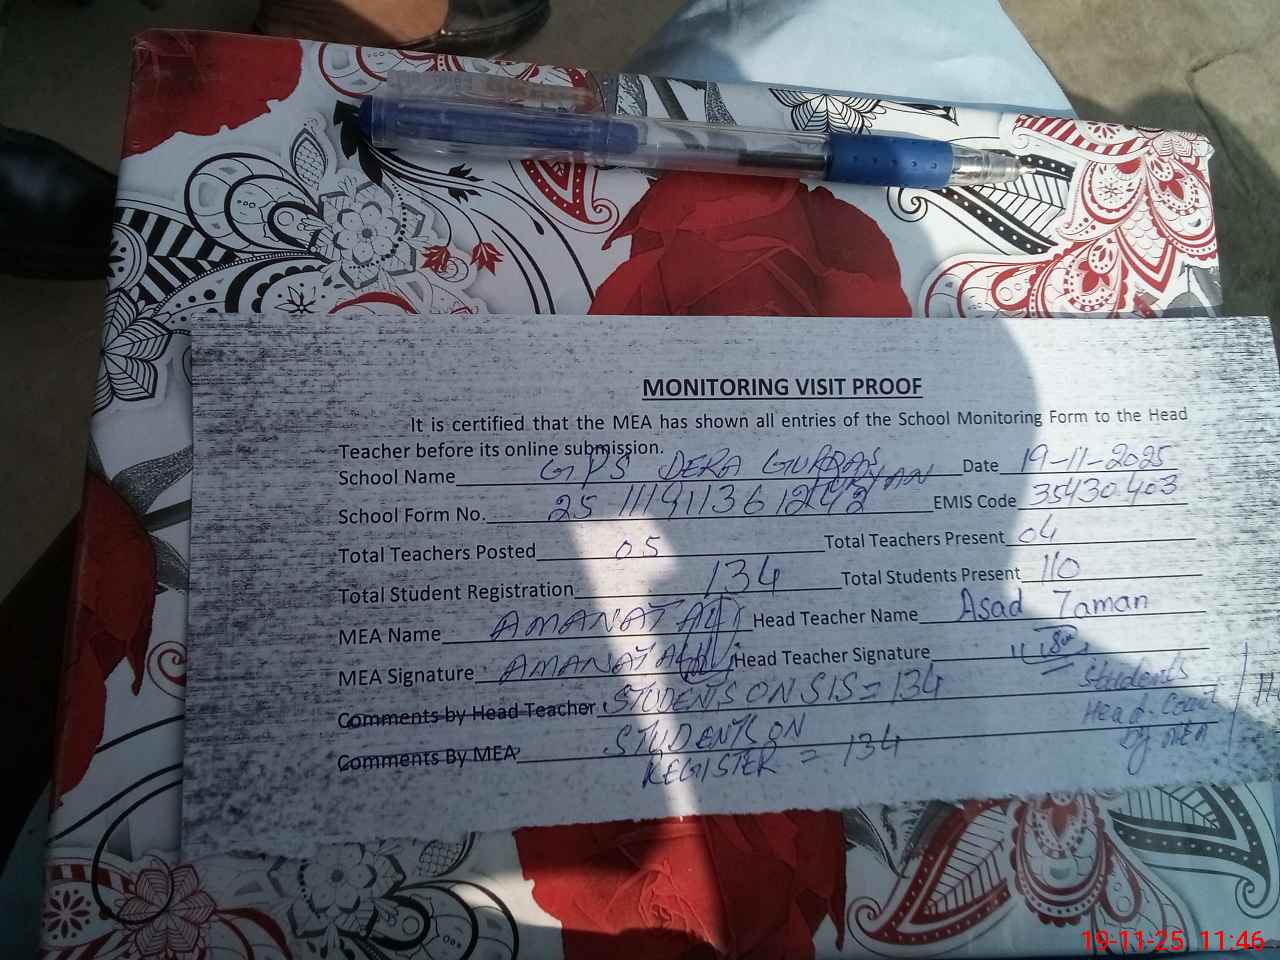 MONITORING VISIT PROOF
It is certified that the MEA has shown all entries of the School Monitoring Form to the Head
Teacher before its online submission.
School Name GPS DERA GURDAS Date 19-11-2025
School Form No. EMIS Code 35430403
Total Teachers Posted 05 Total Teachers Present 04
Total Student Registration 134 Total Students Present 110
MEA Name AMANAT ALI Head Teacher Name Asad Zaman
MEA Signature AMANAT ALI Head Teacher Signature
Comments by Head Teacher STUDENTS ON SIS = 134
Comments By MEA STUDENTS ON
REGISTER = 134
Students
Head-Count
by MEA
19-11-25 11:46